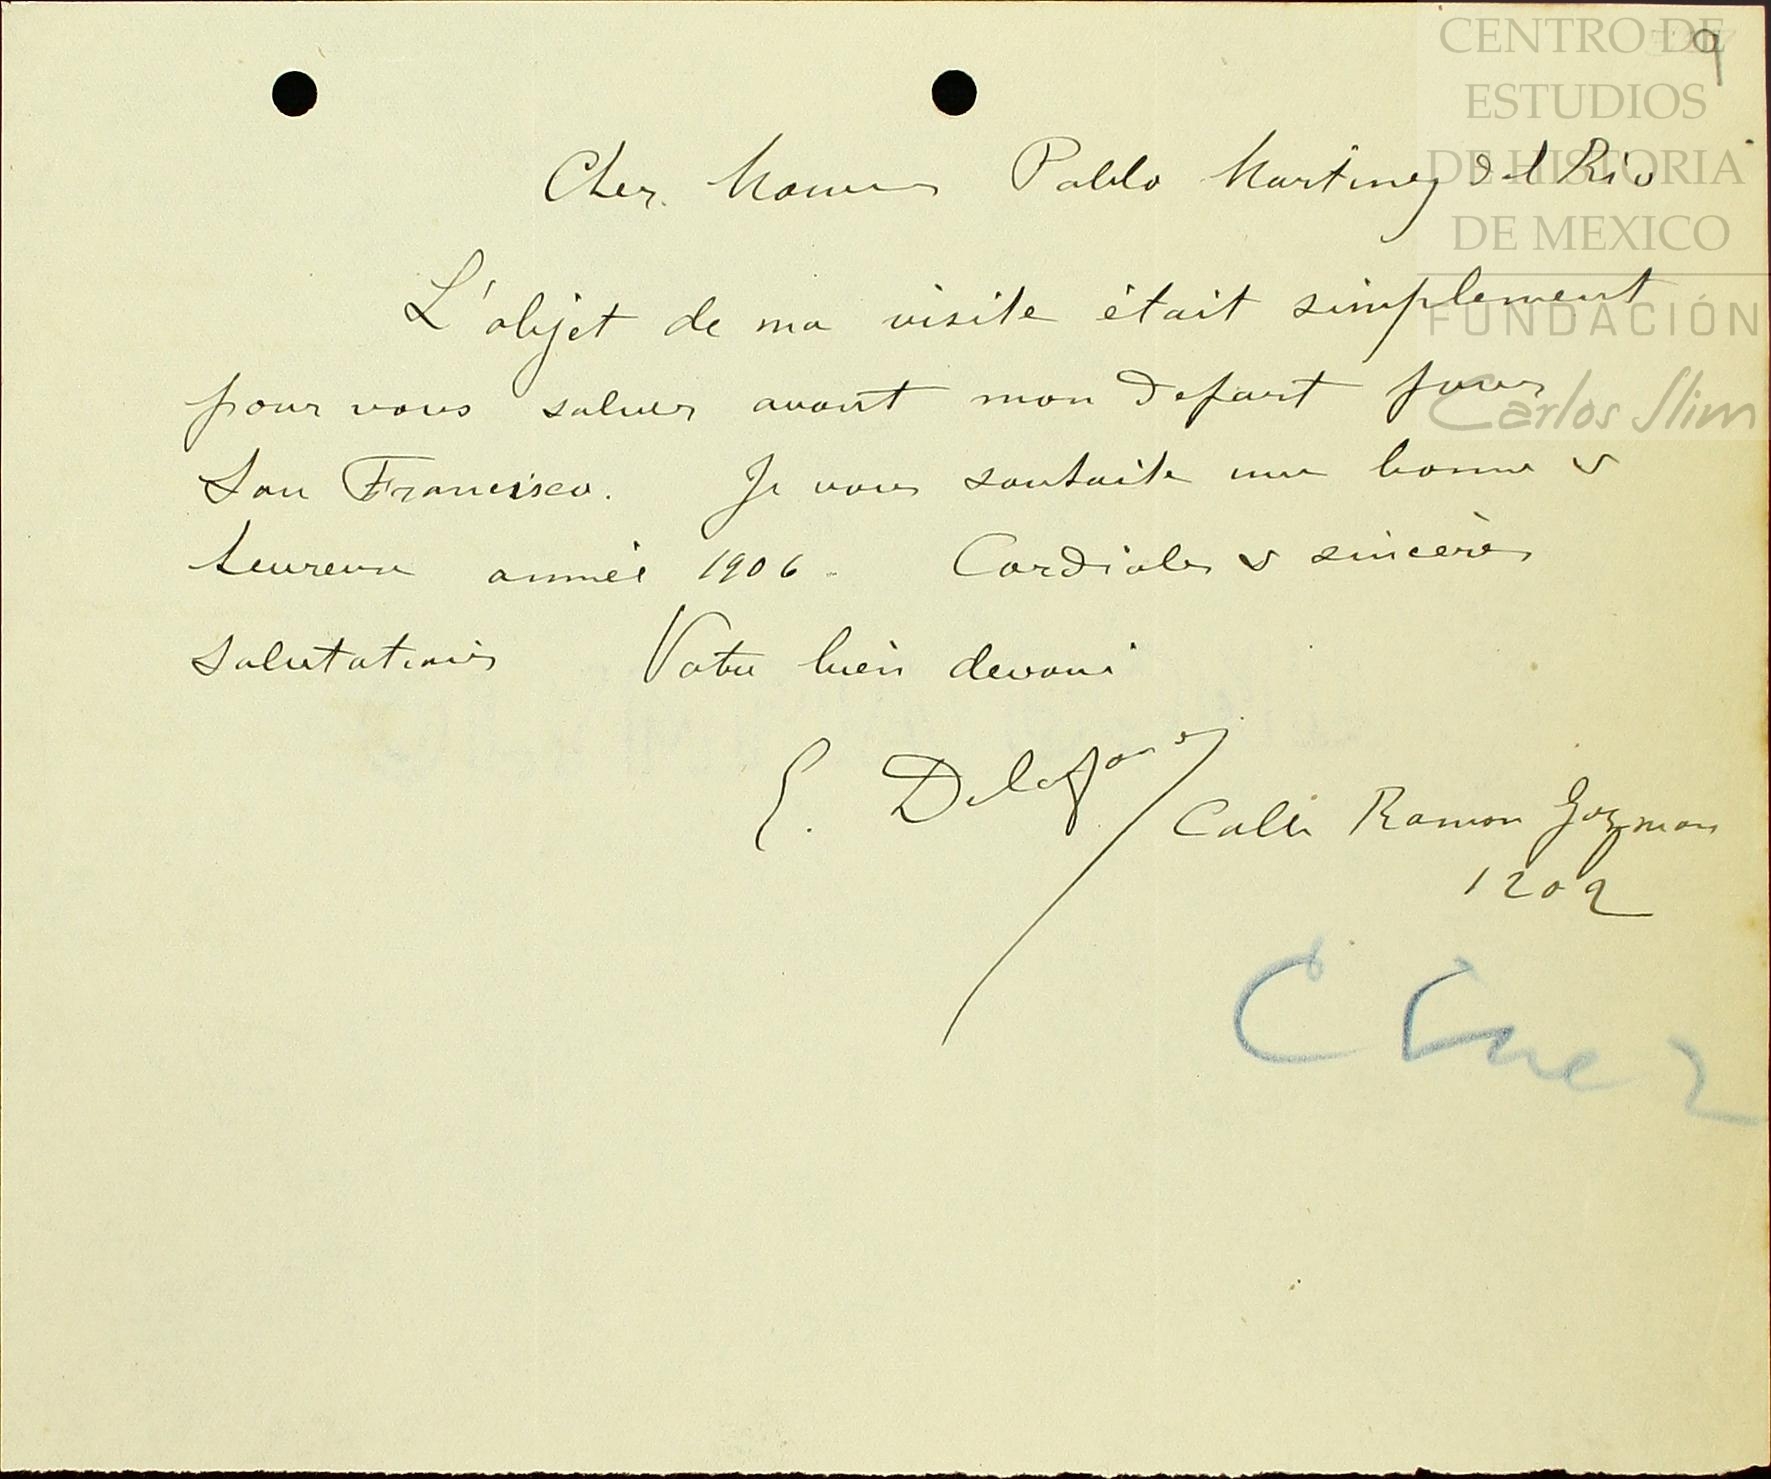 9
CENTRO DE
ESTUDIOS
DE HISTORIA
DE MEXICO
FUNDACIÓN
Carlos Slim
Cher Pablo Martinez del Rio
L'objet de ma visite était simplement
pour vous saluer avant mon depart pour
San Francisco. Je vous souhaite une bonne &
heureuse année 1906. Cordiales & sincères
salutations Votre bien devoué
E.
Calle Ramon Guzman
1202